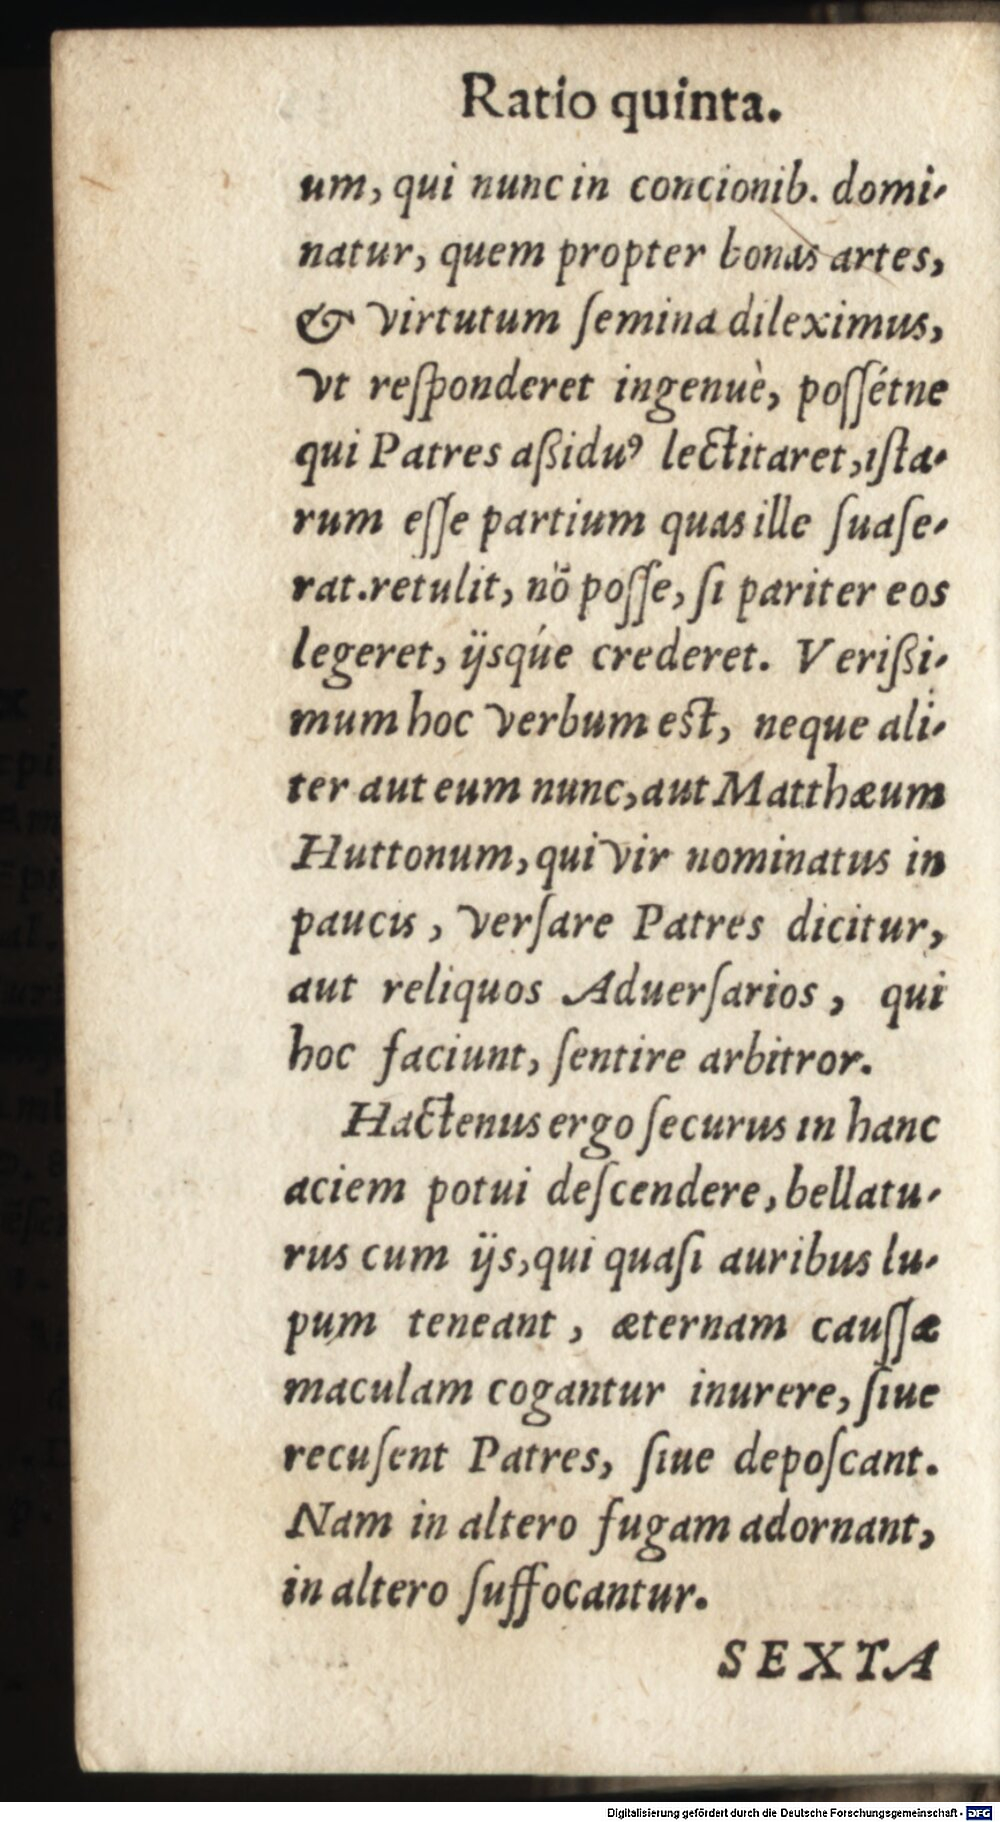 Ratio quinta.
um, qui nunc in concionib. domi-
natur, quem propter bonas artes,
& virtutum ſemina dileximus,
vt reſponderet ingenuè, poſſétne
qui Patres aßiduꝰ lectitaret, iſta-
rum eſſe partium quas ille ſuaſe-
rat. retulit, nõ poſſe, ſi pariter eos
legeret, ijsq́ue crederet. Verißi-
mum hoc verbum est, neque ali-
ter aut eum nunc, aut Matthæum
Huttonum, qui vir nominatus in
paucis, verſare Patres dicitur,
aut reliquos Aduerſarios, qui
hoc faciunt, ſentire arbitror.
Hactenus ergo ſecurus in hanc
aciem potui deſcendere, bellatu-
rus cum ijs, qui quaſi auribus lu-
pum teneant, æternam cauſſæ
maculam cogantur inurere, ſiue
recuſent Patres, ſiue depoſcant.
Nam in altero fugam adornant,
in altero ſuffocantur.
SEXTA
Digitalisierung gefördert durch die Deutsche Forschungsgemeinschaft - DFG